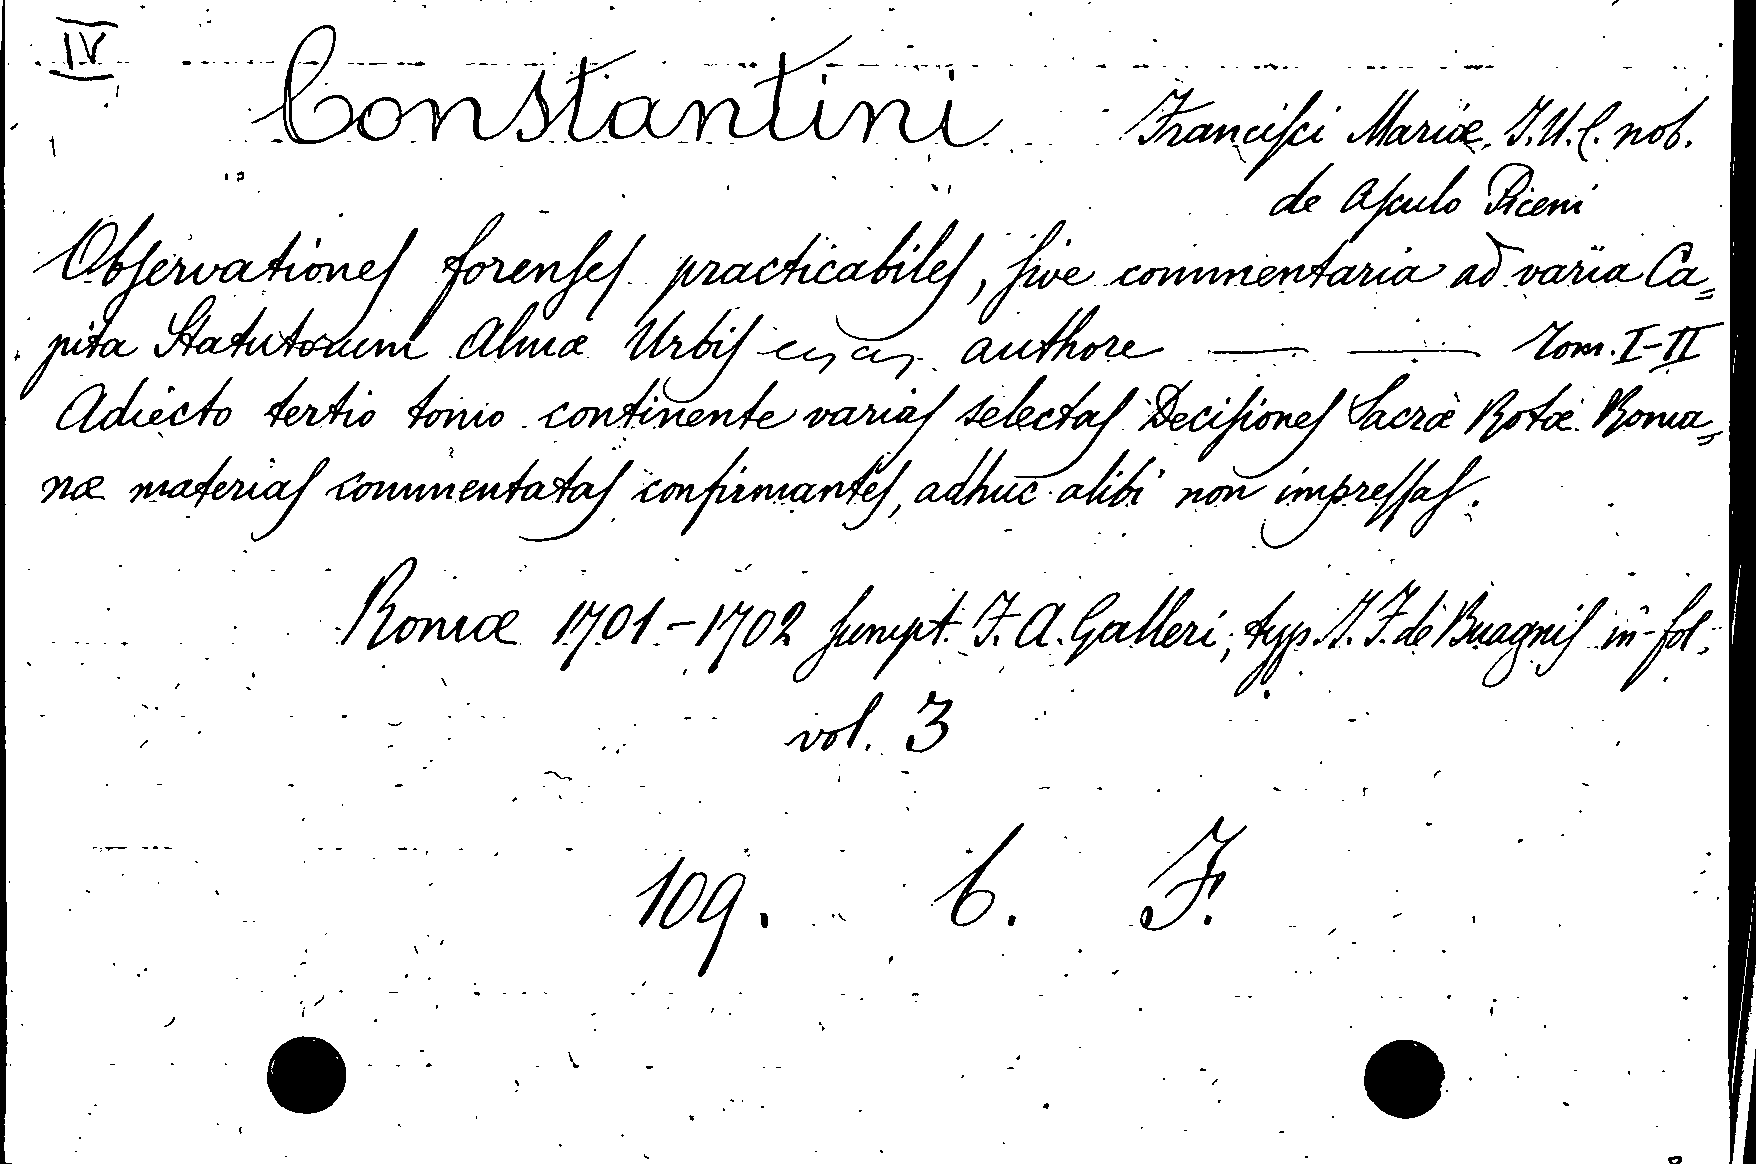 IV
Constantini Francisci Mariæ J.U.C. nob.
de Asculo Piceni
Observationes forenses practicabiles, sive commentaria ad varia Ca=
pita Statutorum Almæ Urbis authore — — Tom. I-II
Adiecto tertio tomo continente varias selectas Decisiones Sacræ Rotæ Roma=
næ materias commentatas confirmantes, adhuc alibi non impressas.
Romæ 1701-1702 sumpt. F. A. Galleri, typ. J. F. de Buagnis in-fol.
vol. 3
109. 6. F.